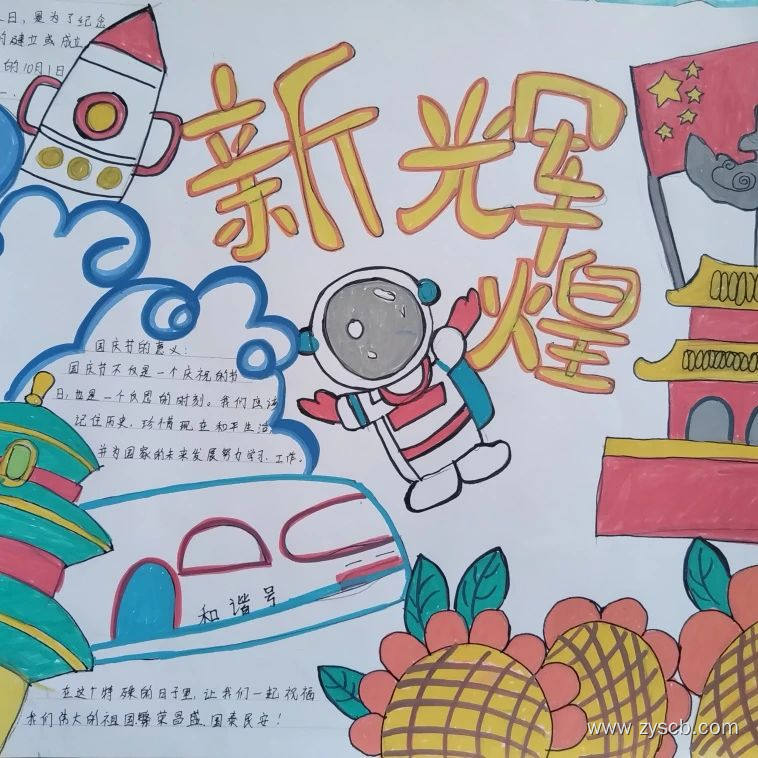 日，是为了纪念
的建立或成立
的10月1日
新辉
煌
国庆节的意义：
国庆节不仅是一个庆祝的节
日，也是一个反思的时刻。我们应该
记住历史，珍惜现在和平生活，
并为国家的未来发展努力学习、工作。
和谐号
在这个特殊的日子里，让我们一起祝福
我们伟大的祖国繁荣昌盛，国泰民安！
www.zyscb.com